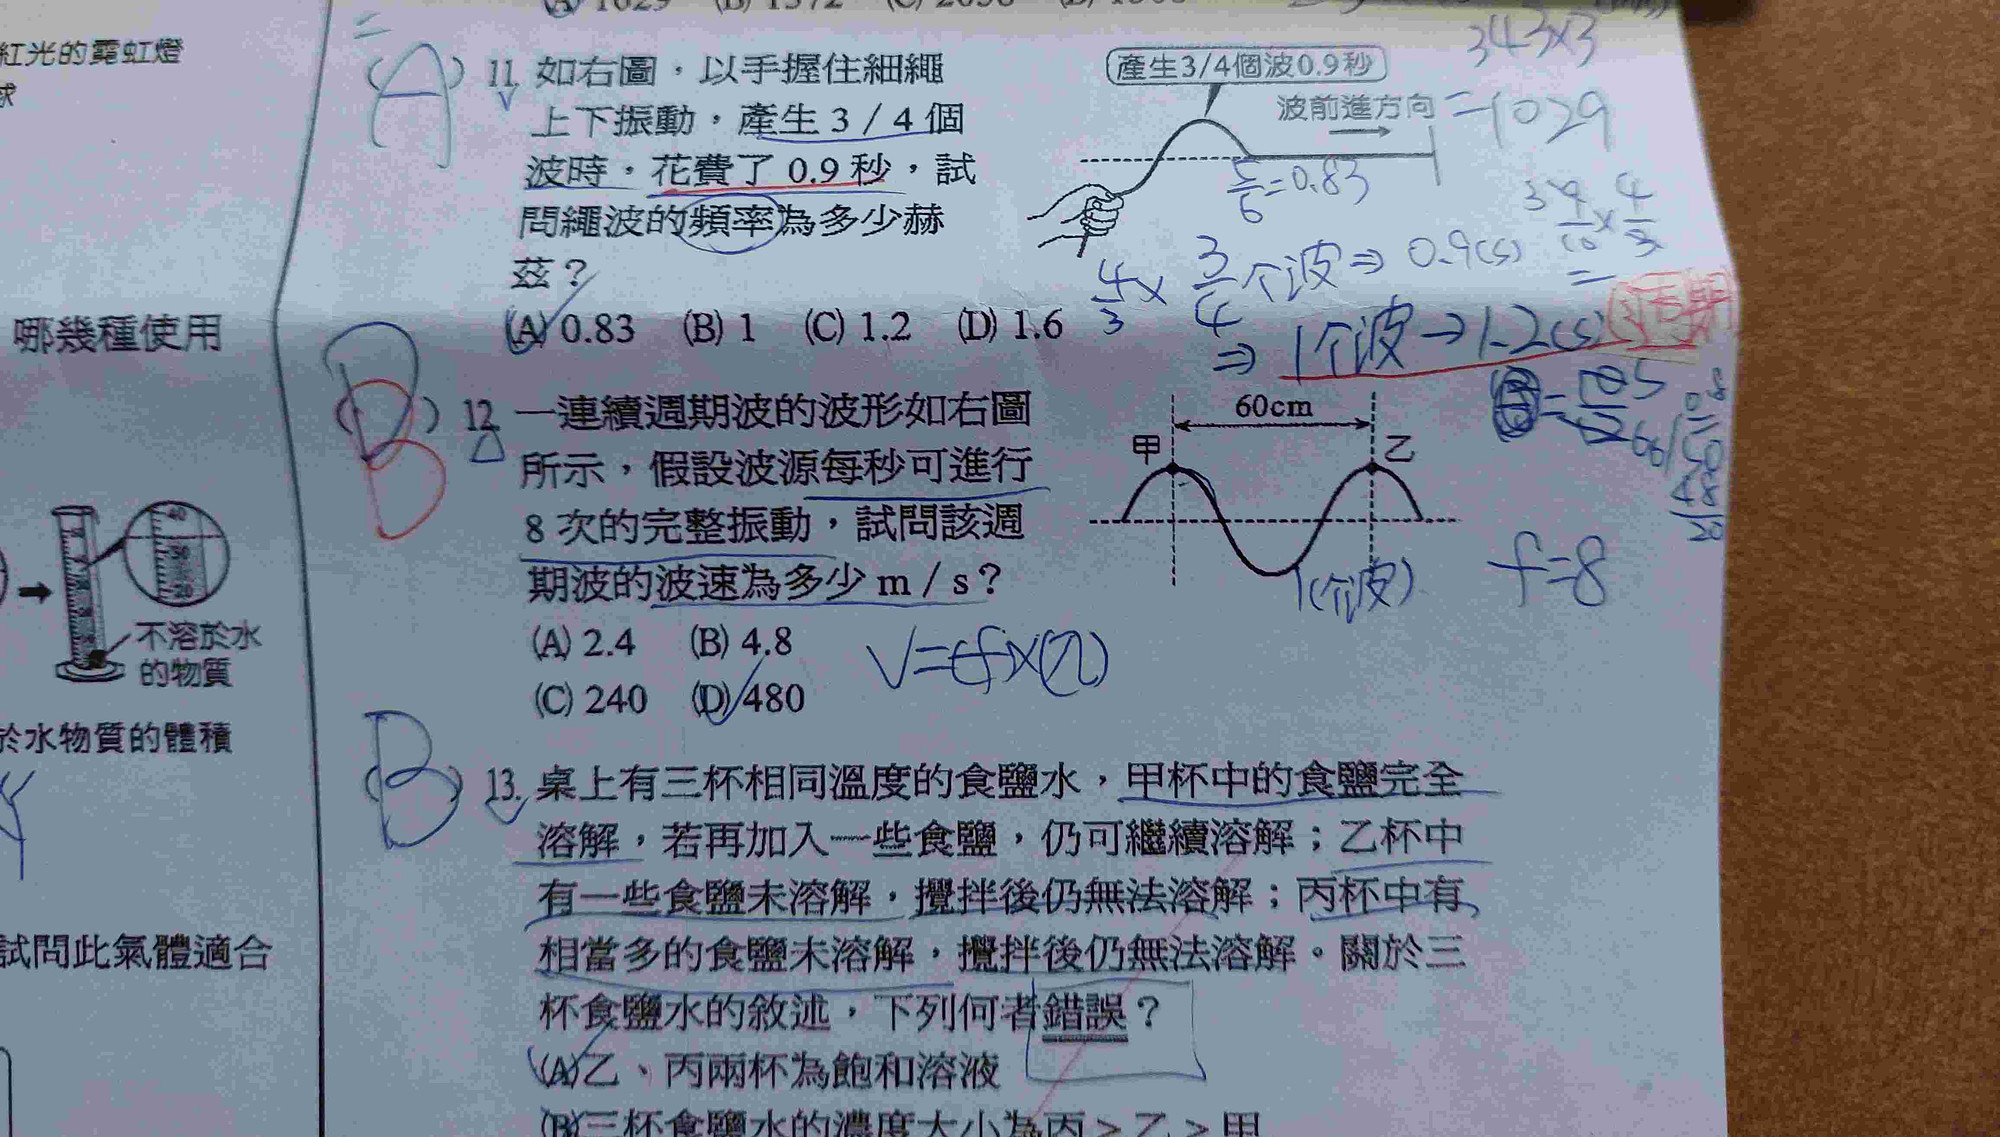 (A) 1029 (B) 1372 (C) 2058
紅光的霓虹燈
球
哪幾種使用
不溶於水
的物質
於水物質的體積
試問此氣體適合
(A) 11. 如右圖，以手握住細繩
上下振動，產生 3 / 4 個
波時，花費了 0.9 秒，試
問繩波的頻率為多少赫
茲？
(A) 0.83 (B) 1 (C) 1.2 (D) 1.6
產生3/4個波0.9秒
波前進方向
343×3
=1029
5/6=0.83
4/3× 3/4个波⇒0.9(s)
9/10×4/3
=
⇒ 1个波→1.2(s)
(B) 12. 一連續週期波的波形如右圖
所示，假設波源每秒可進行
8 次的完整振動，試問該週
期波的波速為多少 m / s？
(A) 2.4 (B) 4.8
(C) 240 (D) 480
60cm
甲 乙
1(个波)
f=8
V=(f)×(λ)
(B) 13. 桌上有三杯相同溫度的食鹽水，甲杯中的食鹽完全
溶解，若再加入一些食鹽，仍可繼續溶解；乙杯中
有一些食鹽未溶解，攪拌後仍無法溶解；丙杯中有
相當多的食鹽未溶解，攪拌後仍無法溶解。關於三
杯食鹽水的敘述，下列何者錯誤？
(A)乙、丙兩杯為飽和溶液
(B)三杯食鹽水的濃度大小為丙＞乙＞甲